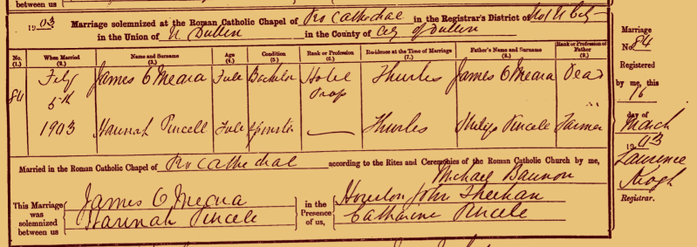 between us
1903 Marriage solemnized at the Roman Catholic Chapel of Pro Cathedral in the Registrar's District of No 1 N City
in the Union of N Dublin in the County of City of Dublin
No. When Married Name and Surname Age Condition Rank or Profession Residence at the Time of Marriage Father's Name and Surname Rank or Profession of Father
(1.) (2.) (3.) (4.) (5.) (6.) (7.) (8.) (9.)
84 Feby 5th James O Meara Full Bachelor Hotel Prop Thurles James O Meara Dead
1903 Hannah Pincell Full Spinster — Thurles Philip Pincell Farmer
Married in the Roman Catholic Chapel of Pro Cathedral according to the Rites and Ceremonies of the Roman Catholic Church by me,
Michael Bannon
This Marriage was solemnized between us
James O Meara
Hannah Pincell
in the Presence of us,
John Sheehan
Catharine Pincell
Marriage
No. 84
Registered
by me, this
16
day of
March
1903
Laurence
Keogh
Registrar.